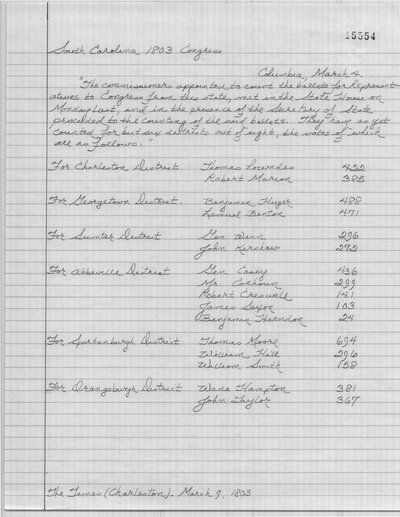 15554
South Carolina 1803 Congress
Columbia, March 4.
"The commissioners appointed to count the ballots for Represent-
atives to Congress from this state, met in the State House on
Monday last, and in the presence of the Secretary of State
proceeded to the counting of the said ballots. They have as yet
counted for but six districts out of eight, the votes of which
are as follows:"
For Charleston District Thomas Lowndes
Robert Marion 385
For Georgetown District. Benjamin Huger 488
Lemuel Benton 471
For Sumter District Gen Winn 296
John Kershaw 272
For Abbeville District Gen. Casey 436
Mr. Colhoun 299
Robert Creswell 141
James Saxon 103
Benjamin Harndon 24
For Spartanburgh District Thomas Moore 694
William Hill 296
William Smith 158
For Orangeburgh District Wade Hampton 381
John Taylor 367
The Times (Charleston). March 9, 1803